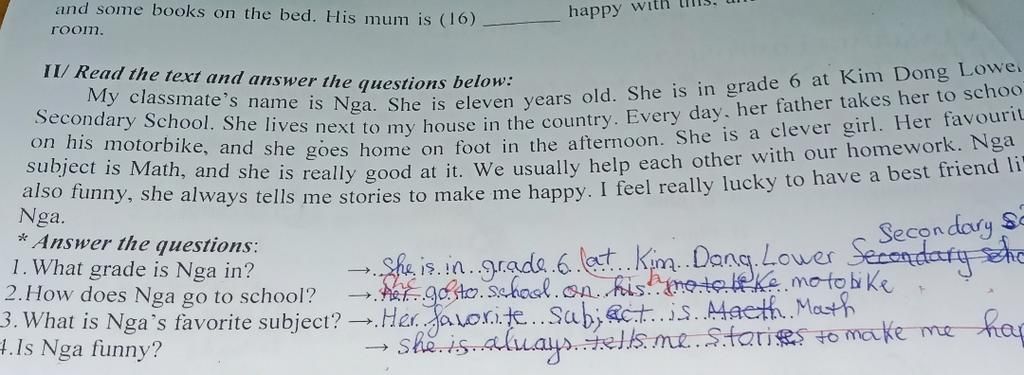 and some books on the bed. His mum is (16) ________ happy with this,
room.
II/ Read the text and answer the questions below:
My classmate's name is Nga. She is eleven years old. She is in grade 6 at Kim Dong Lower
Secondary School. She lives next to my house in the country. Every day, her father takes her to schoo
on his motorbike, and she goes home on foot in the afternoon. She is a clever girl. Her favourit
subject is Math, and she is really good at it. We usually help each other with our homework. Nga
also funny, she always tells me stories to make me happy. I feel really lucky to have a best friend li
Nga.
* Answer the questions:
Secondary
1. What grade is Nga in? → She is in grade 6 at Kim Dong Lower Secondary
2.How does Nga go to school? → She go to school on his motobike
3. What is Nga's favorite subject? → Her favorite subject is Math
4.Is Nga funny? → She is always tells me stories to make me hap